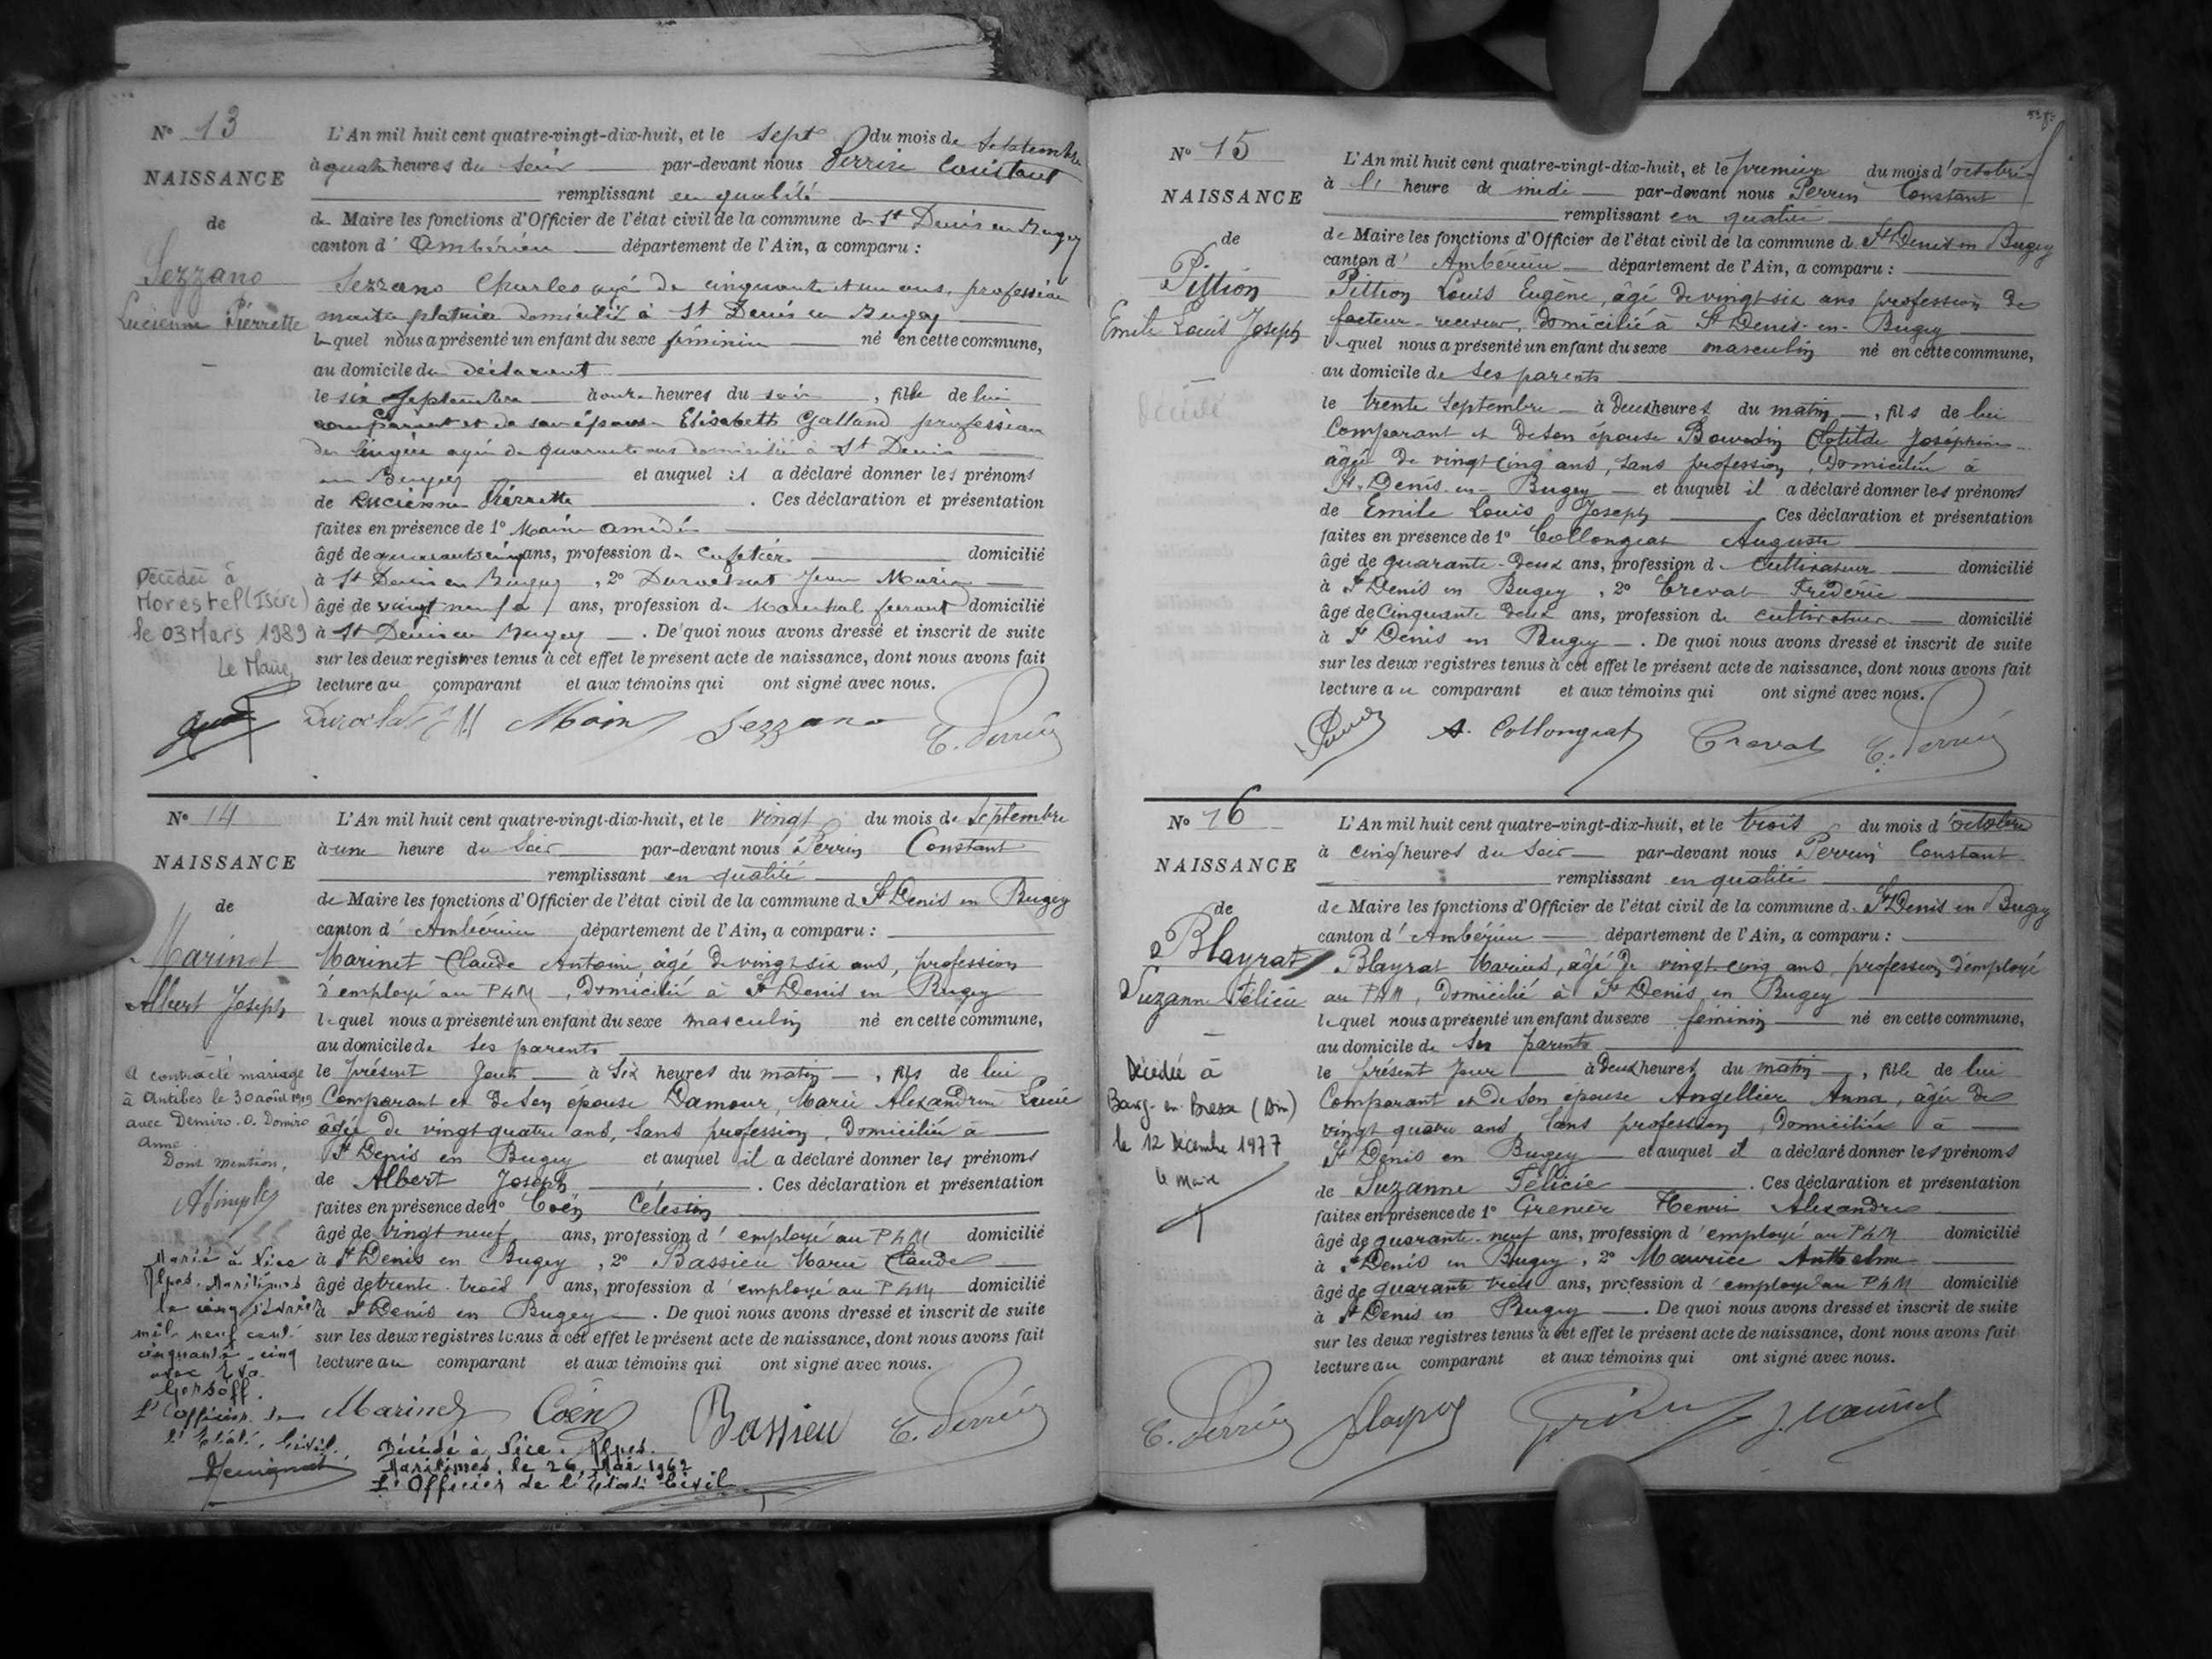 N° 13
NAISSANCE
de
Sezzano
Lucienne Pierrette
Décédée à
Morestel (Isère)
le 03 Mars 1989
Le Maire,
L'An mil huit cent quatre-vingt-dix-huit, et le sept du mois de Septembre
à quatre heures du soir par-devant nous Perrin Constant
remplissant en qualité
de Maire les fonctions d'Officier de l'état civil de la commune de St Denis en Bugey
canton d' Ambérieu département de l'Ain, a comparu :
Sezzano Charles agé de cinquante et un ans, profession
maitre platrier domicilié à St Denis en Bugey
lequel nous a présenté un enfant du sexe féminin né en cette commune,
au domicile du déclarant
le six Septembre à onze heures du soir, fille de lui
comparant et de son épouse Elisabeth Galland profession
de lingère agée de quarante ans domiciliée à St Denis
en Bugey et auquel il a déclaré donner les prénoms
de Lucienne Pierrette . Ces déclaration et présentation
faites en présence de 1° Moine Amédée
âgé de quarante cinq ans, profession de cafetier domicilié
à St Denis en Bugey, 2° Durochat Jean Marie
âgé de vingt neuf ans, profession de Maréchal ferrant domicilié
à St Denis en Bugey . De quoi nous avons dressé et inscrit de suite
sur les deux registres tenus à cet effet le présent acte de naissance, dont nous avons fait
lecture au comparant et aux témoins qui ont signé avec nous.
Durochat J M Moin Sezzano C. Perrin
N° 14
NAISSANCE
de
Marinet
Albert Joseph
A contracté mariage
à Antibes le 30 août 1919
avec Demiro. O. Domiro
Anne
Dont mention,
Marié à Nice
Alpes-Maritimes
le cinq février
mil neuf cent
cinquante-cinq
avec Eva
Gorsoff.
L'Officier de
l'Etat Civil.
L'An mil huit cent quatre-vingt-dix-huit, et le vingt du mois de Septembre
à une heure du soir par-devant nous Perrin Constant
remplissant en qualité
de Maire les fonctions d'Officier de l'état civil de la commune d St Denis en Bugey
canton d' Ambérieu département de l'Ain, a comparu :
Marinet Claude Antoine, âgé de vingt six ans, profession
d'employé au PLM, domicilié à St Denis en Bugey
lequel nous a présenté un enfant du sexe masculin né en cette commune,
au domicile de ses parents
le présent jour à six heures du matin, fils de lui
Comparant et de son épouse Damour, Marie Alexandrine Lucie
âgée de vingt quatre ans, sans profession, domiciliée à
St Denis en Bugey et auquel il a déclaré donner les prénoms
de Albert Joseph . Ces déclaration et présentation
faites en présence de 1° Coën Célestin
âgé de vingt neuf ans, profession d' employé au PLM domicilié
à St Denis en Bugey, 2° Bassieu Marie Claude
âgé de trente-trois ans, profession d' employé au PLM domicilié
à St Denis en Bugey . De quoi nous avons dressé et inscrit de suite
sur les deux registres tenus à cet effet le présent acte de naissance, dont nous avons fait
lecture au comparant et aux témoins qui ont signé avec nous.
Marinet Coën Bassieu C. Perrin
Décédé à Nice. Alpes-
Maritimes, le 26 Mai 1962
L'Officier de l'Etat Civil
N° 15
NAISSANCE
de
Pittion
Emile Louis Joseph
Décédé
L'An mil huit cent quatre-vingt-dix-huit, et le premier du mois d'octobre
à l' heure de midi par-devant nous Perrin Constant
remplissant en qualité
de Maire les fonctions d'Officier de l'état civil de la commune d St Denis en Bugey
canton d' Ambérieu département de l'Ain, a comparu :
Pittion Louis Eugène, âgé de vingt six ans profession de
facteur-receveur, domicilié à St Denis-en-Bugey
lequel nous a présenté un enfant du sexe masculin né en cette commune,
au domicile de ses parents
le trente Septembre à deux heures du matin, fils de lui
Comparant et de son épouse Bourdin Clotilde Joséphine
âgée de vingt cinq ans, sans profession, domiciliée à
St Denis-en-Bugey et auquel il a déclaré donner les prénoms
de Emile Louis Joseph Ces déclaration et présentation
faites en présence de 1° Collongeat Auguste
âgé de quarante-deux ans, profession de cultivateur domicilié
à St Denis en Bugey, 2° Crevat Frédéric
âgé de Cinquante deux ans, profession de cultivateur domicilié
à St Denis en Bugey . De quoi nous avons dressé et inscrit de suite
sur les deux registres tenus à cet effet le présent acte de naissance, dont nous avons fait
lecture au comparant et aux témoins qui ont signé avec nous.
A. Collongeat Crevat C. Perrin
N° 16
NAISSANCE
de
Blayrat
Suzanne Félicie
Décédée à
Bourg-en-Bresse (Ain)
le 12 Décembre 1977
le Maire
L'An mil huit cent quatre-vingt-dix-huit, et le trois du mois d'octobre
à cinq heures du soir par-devant nous Perrin Constant
remplissant en qualité
de Maire les fonctions d'Officier de l'état civil de la commune d St Denis en Bugey
canton d' Ambérieu département de l'Ain, a comparu :
Blayrat Marius, âgé de vingt-cinq ans, profession d'employé
au PLM, domicilié à St Denis en Bugey
lequel nous a présenté un enfant du sexe féminin né en cette commune,
au domicile de ses parents
le présent jour à deux heures du matin, fille de lui
Comparant et de son épouse Angellier Anna, âgée de
vingt quatre ans sans profession, domiciliée à
St Denis en Bugey et auquel il a déclaré donner les prénoms
de Suzanne Félicie . Ces déclaration et présentation
faites en présence de 1° Grenier Henri Alexandre
âgé de quarante-neuf ans, profession d' employé au PLM domicilié
à St Denis en Bugey, 2° Maurice Anthelme
âgé de quarante trois ans, profession d' employé au PLM domicilié
à St Denis en Bugey . De quoi nous avons dressé et inscrit de suite
sur les deux registres tenus à cet effet le présent acte de naissance, dont nous avons fait
lecture au comparant et aux témoins qui ont signé avec nous.
C. Perrin Blayrat Grenier Maurice